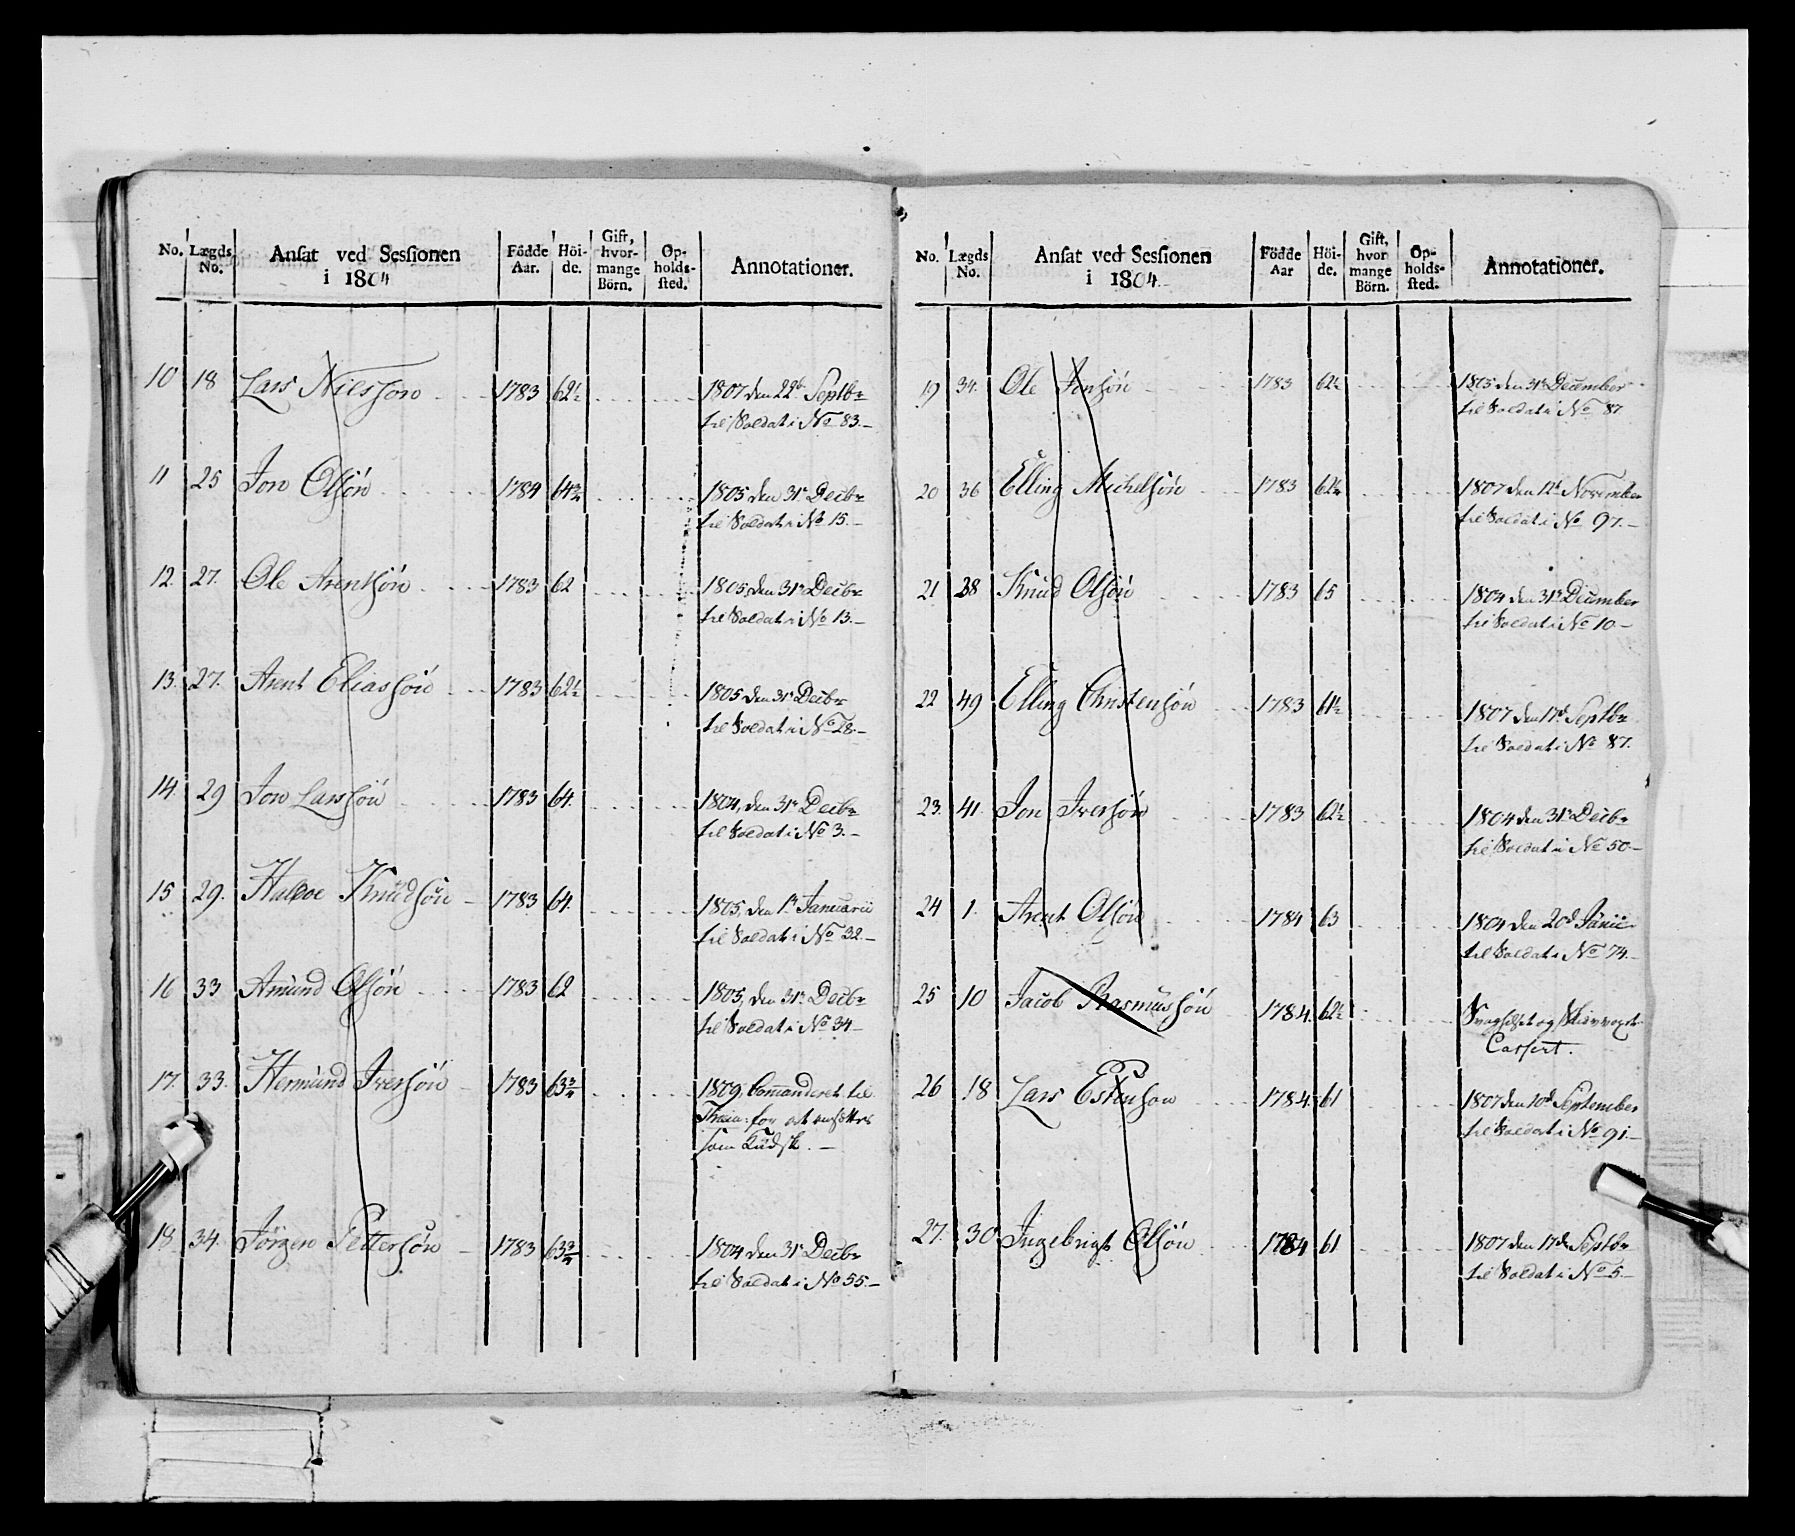 No. Lægds No. Ansat ved Sessionen i 1804 Födde Aar. Höide. Gift, hvormange Börn. Opholdssted. Annotationer.
10 18 Lars Nilsson 1783 62½ 1807 den 22de Septbr
til Soldat i No 83.
11 25 Jon Olsön 1784 64¾ 1805 den 31te Decbr
til Soldat i No 15.
12. 27. Ole Arentsön 1783 62 1805 den 31te Decbr
til Soldat i No 13.
13. 27. Arent Eliassön 1783 62½ 1805 den 31te Decbr
til Soldat i No 28.
14. 29 Jon Larssön 1783 64. 1804, den 31te Decbr
til Soldat i No 3.
15 29. Halvor Knudsön 1783 64. 1805, den 1te Januarii
til Soldat i No 32.
16 33 Amund Olsön 1783 62 1805, den 31te Decbr
til Soldat i No 34
17. 33. Hermund Iversön 1783 63¾ 1809, Comanderet til
Train: for at ansættes
som Kudsk.
18 34. Jörgen Pettersön 1783 63¾ 1804 den 31te Decbr
til Soldat i No 55.
No. Lægds No. Ansat ved Sessionen i 1804 Födde Aar Höide. Gift, hvormange Börn. Opholdssted. Annotationer.
19 34. Ole Jonsön 1783 62½ 1805 den 31te December
til Soldat i No 87
20 36 Elling Michelsön 1783 62½ 1807 den 12te November
til Soldat i No 97.
21 38 Knud Olsön 1783 65 1804 den 31te December
til Soldat i No 10
22 49 Elling Christensön 1783 61½ 1807 den 17de Septbr
til Soldat i No 87.
23. 41. Jon Iversön 1783 62½ 1804 den 31te Decbr
til Soldat i No 50
24 1. Arent Olsön 1784 63 1804 den 20de Junii
til Soldat i No 74.
25 10 Jacob Rasmussön 1784. 62½ Svagsidet og
Cassert.
26 18 Lars Estensøn 1784. 61 1807 den 10de September
til Soldat i No 91.
27. 30 Ingebrigt Olsön 1784 61 1807 den 17de Septbr
til Soldat i No 5